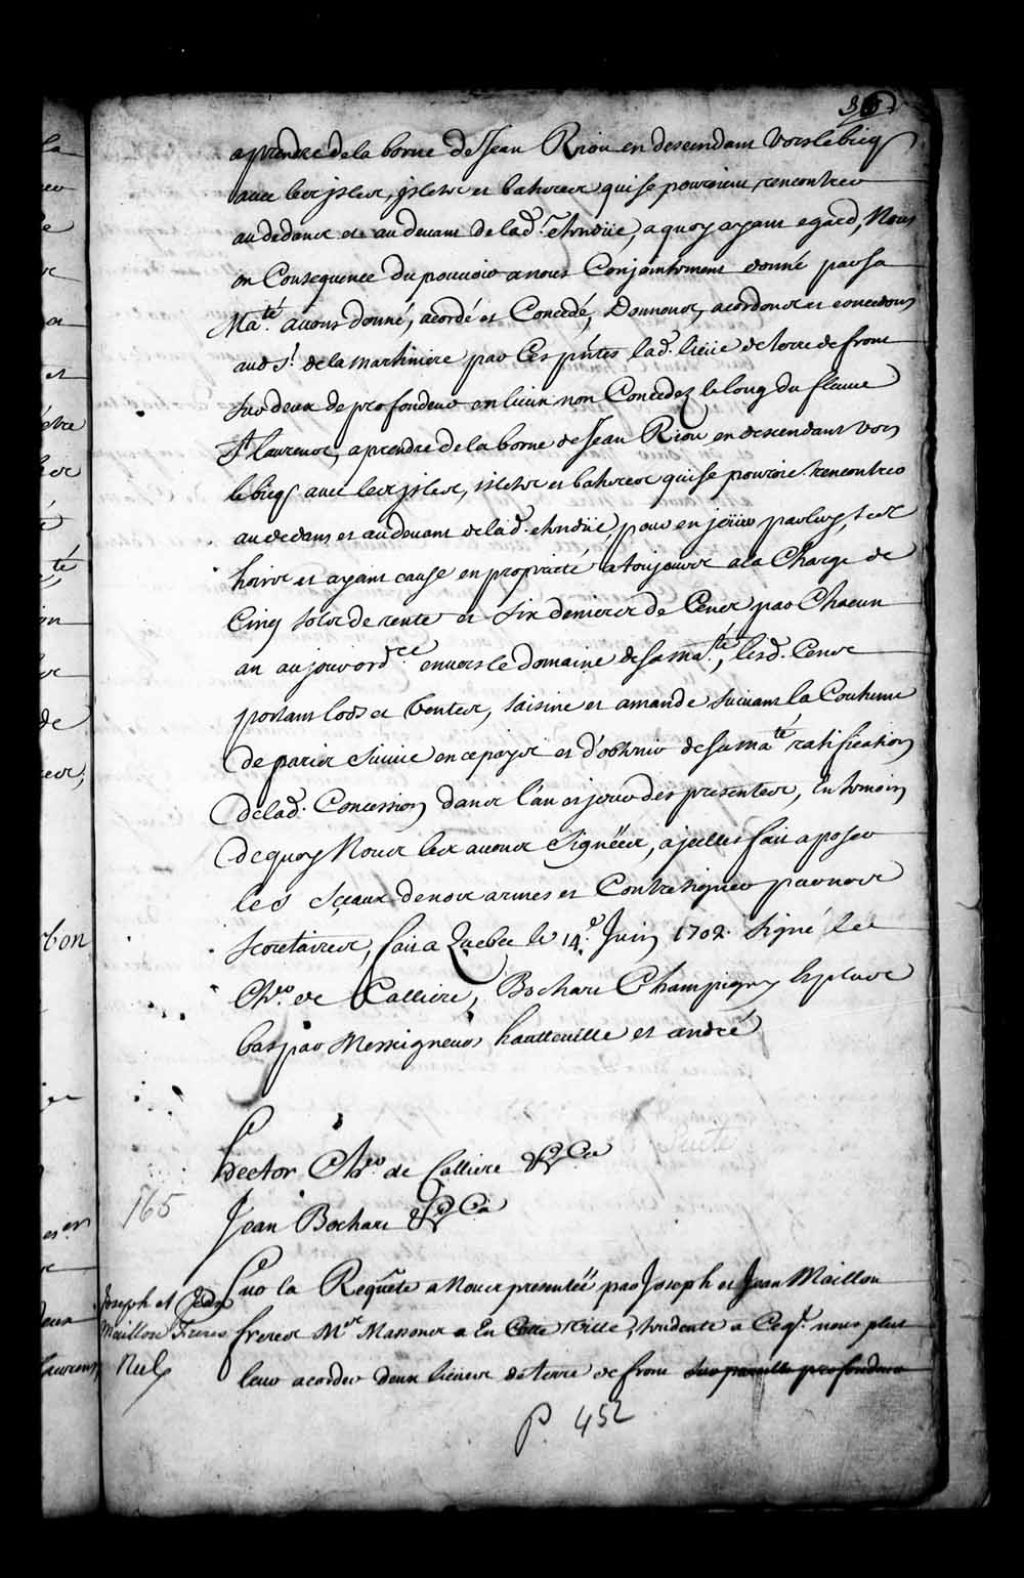 aprendre de la borne de Jean Riou en descendant vers le bicq
avec les jsles, jslets et batures qui se pouroient rencontrer
au dedans et au devant de lad. Etendüe, a quoy ayant egard, Nous
en Consequence du pouvoir a nous Conjointement donné par sa
Ma.té avons donné, acordé et Concedé, Donnons, acordons et concedons
aud S.r de la martiniere par Ces p̃ntes lad. lieüe de terre de front
sur deux de profondeur en lieux non Concedez le long du fleuve
S.t laurens, a prendre de la borne de Jean Riou en descendant vers
le bicq avec les jsles, islets et batures qui se pouroie. rencontrer
au dedans et au devant de lad. etendüe, pour en joüir par luy, ses
hoirs et ayant cause en proprieté a toujours a la Charge de
Cinq sols de rente et six deniers de Cens par Chacun
an au jour ord.re envers le domaine de sa ma.té, lesd. Cens
portant lods et ventes, saisine et amande suivant la Coutume
de paris suivie en ce pays et d'obtenir de sa ma.té ratification
de lad. Concession dans l'an et jour des presentes, En temoin
de quoy Nous les avons signées, a jcelles fait aposer
les sçeaux de nos armes et Contresigner par nos
secretaires, fait a Quebec le 14.e Juin 1702. Signé Le
Ch.er de Calliere, Bochart Champigny Et plus
bas par Messigneurs hautteville et andré
Hector Ch.er de Calliere &Ca
165
Jean Bochart &Ca
Joseph et Jean
Maillou Freres
Nul
Sur la Requête a Nous presentée par Joseph et Jean Maillou
freres M.es Massons a En Cette Ville, tendente a Ceq. nous plut
leur acorder deux lieues de terre de front sur pareille profondeur
P. 452